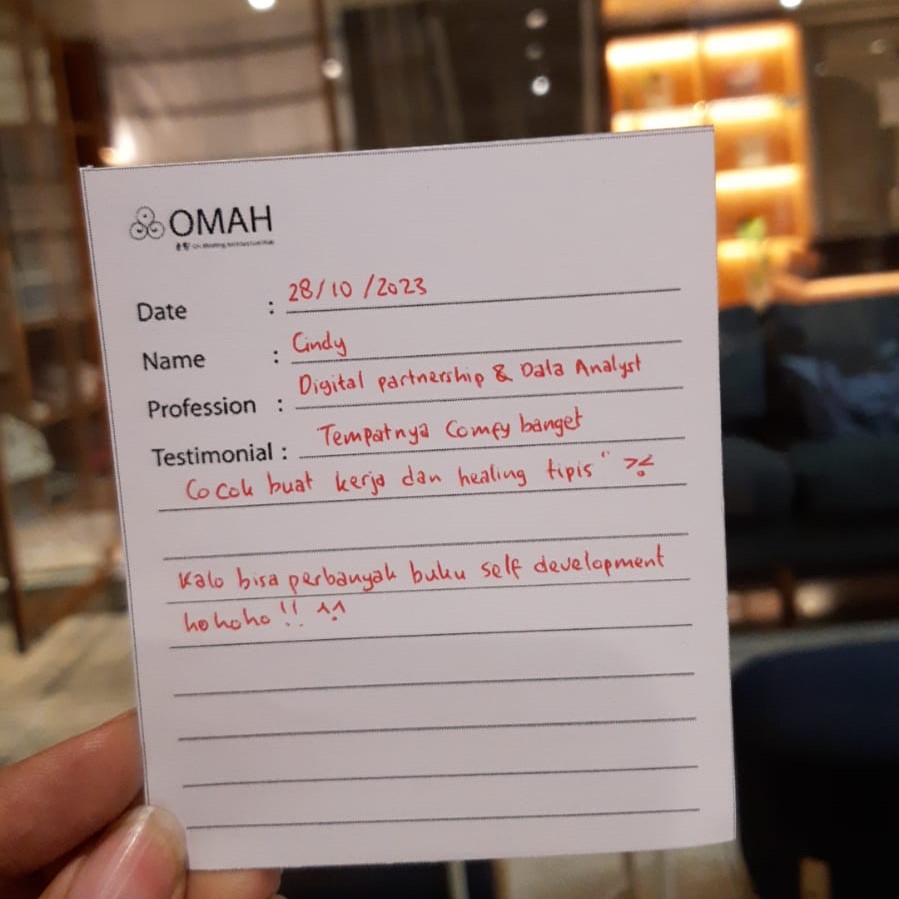 OMAH
Date : 28/10/2023
Name : Cindy
Profession : Digital partnership & Data Analyst
Testimonial : Tempatnya Comfy banget
Cocok buat kerja dan healing tipis" >.<
Kalo bisa perbanyak buku self development
hohoho!! ^.^